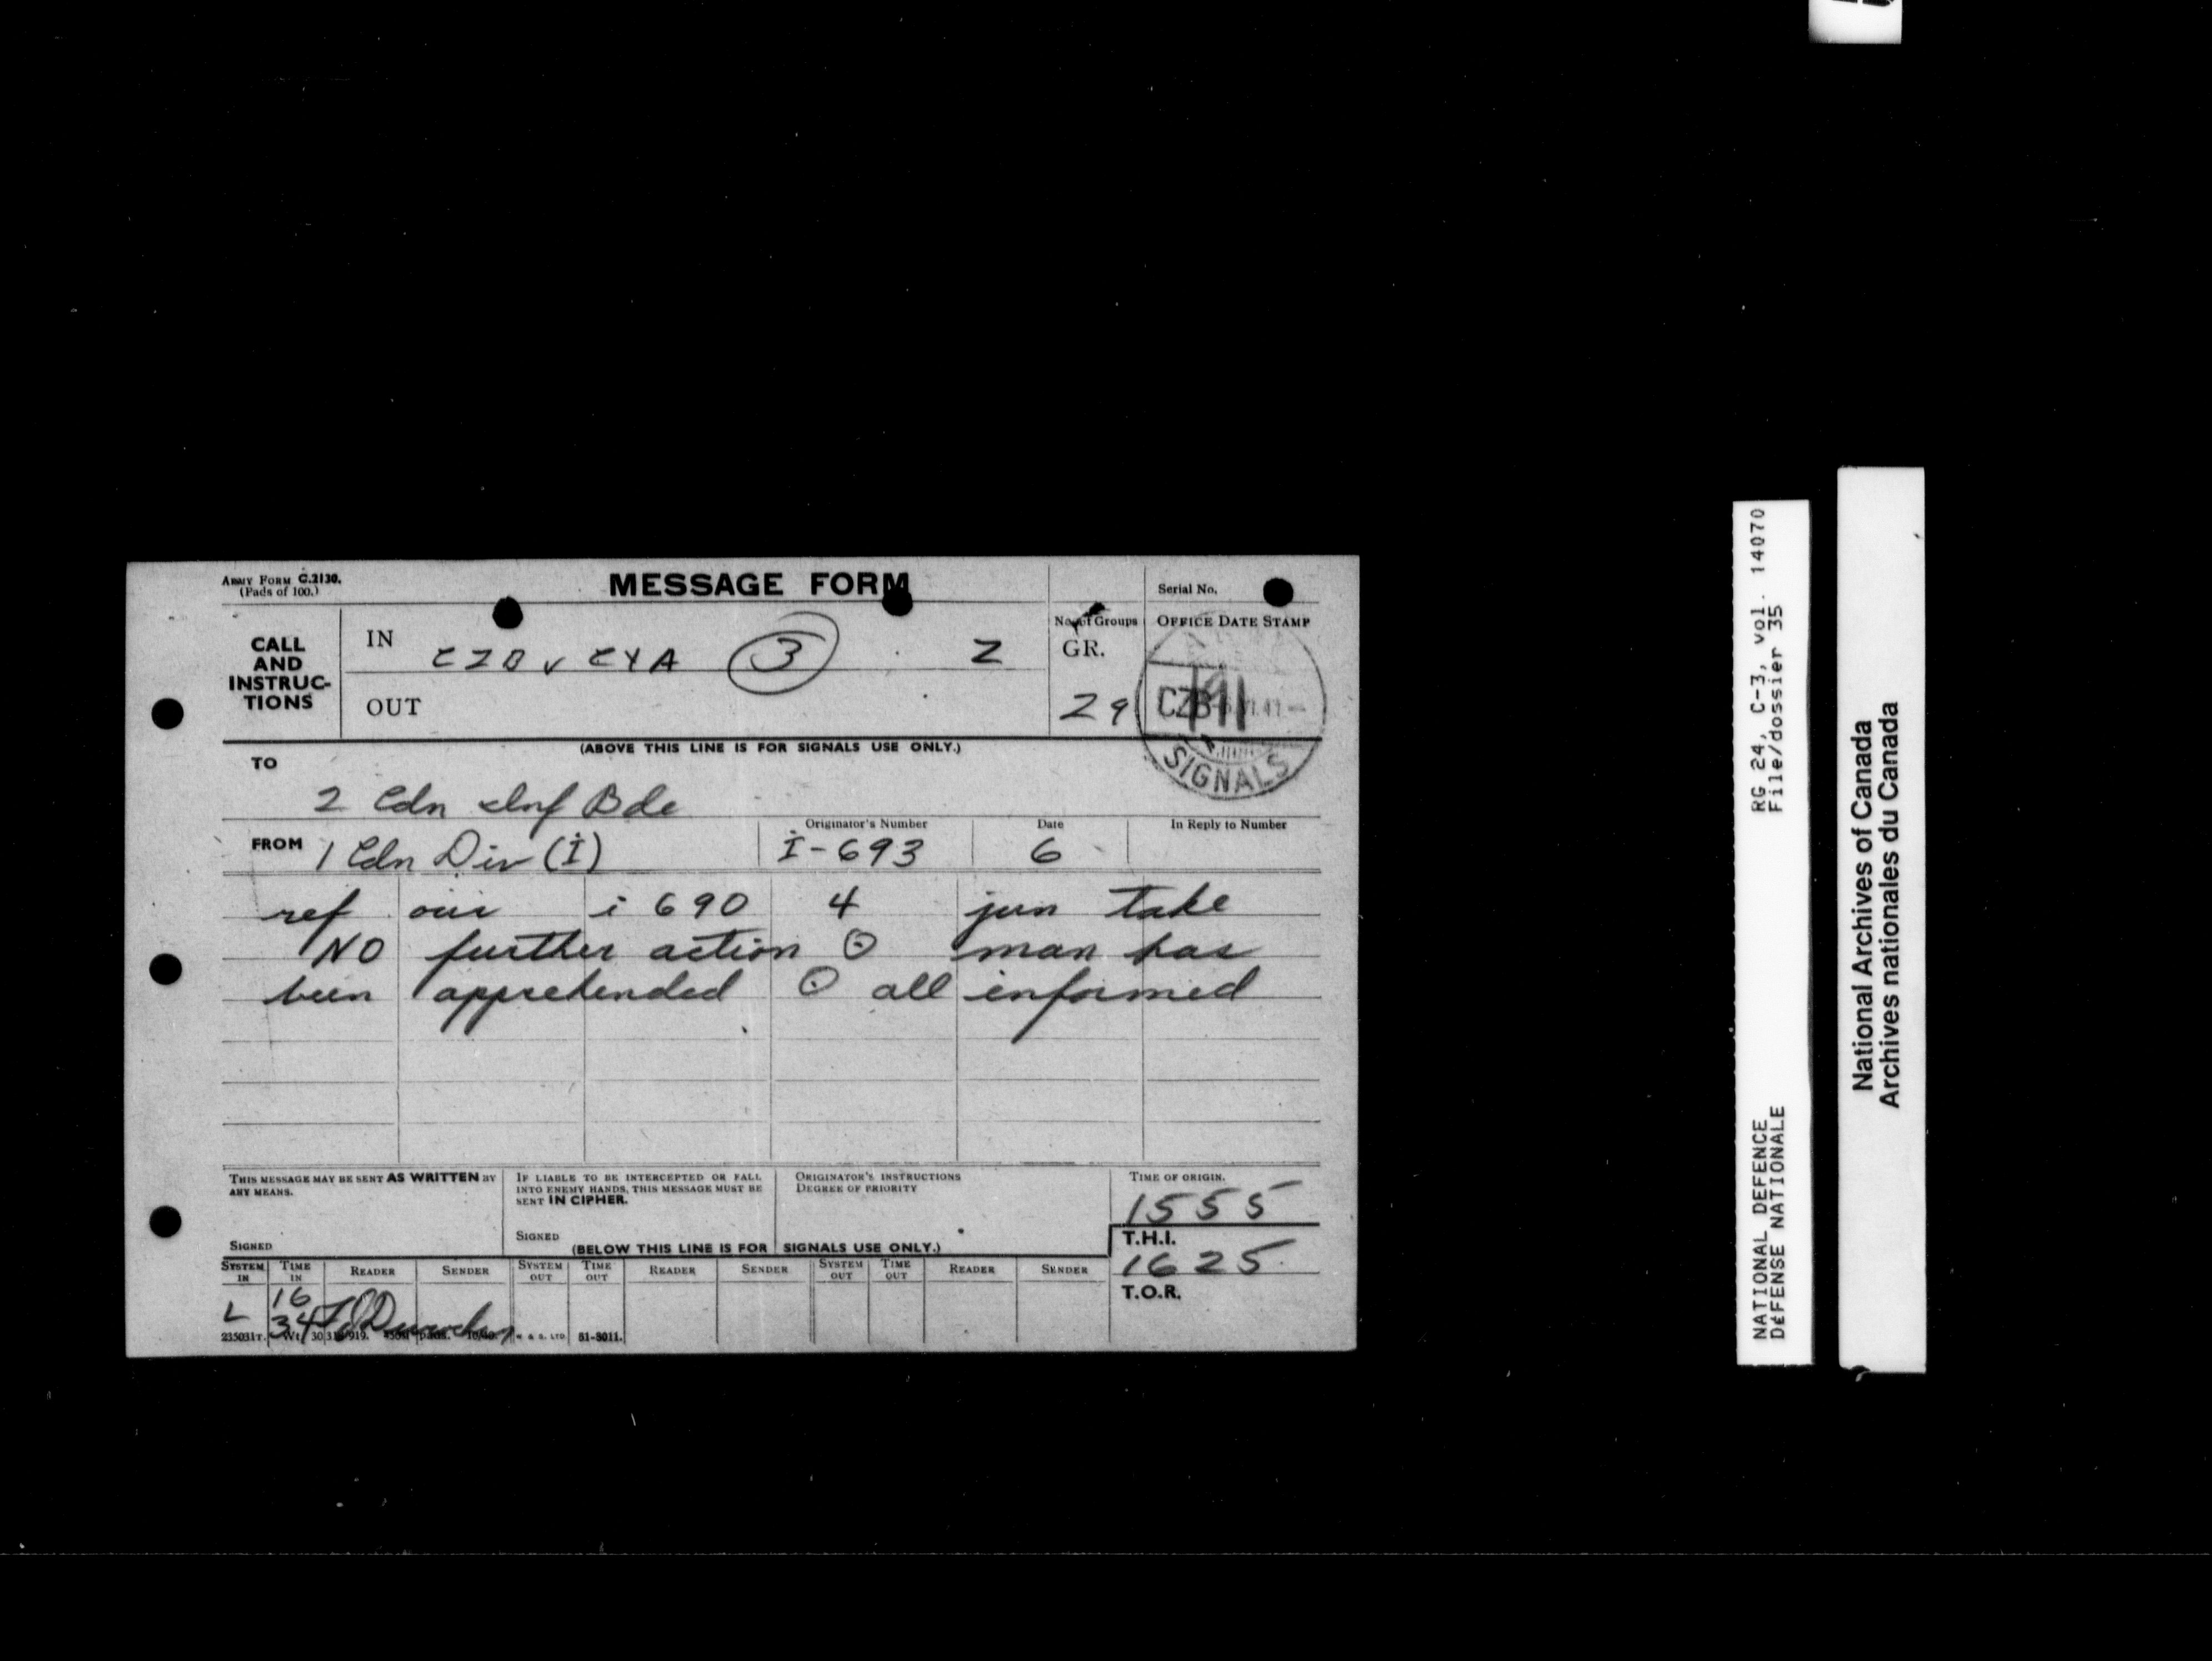 ARMY FORM C.2130.
(Pads of 100.)
MESSAGE FORM
Serial No.
CALL
AND
INSTRUC-
TIONS
IN
CZB v CYA 3 Z
OUT
No. of Groups
GR.
29
OFFICE DATE STAMP
CZB
SIGNALS
(ABOVE THIS LINE IS FOR SIGNALS USE ONLY.)
TO
2 Cdn Inf Bde
FROM 1 Cdn Div (I)
Originator's Number
I-693
Date
6
In Reply to Number
ref our i 690 4 jun take
NO further action ⊙ man has
been apprehended ⊙ all informed
THIS MESSAGE MAY BE SENT AS WRITTEN BY
ANY MEANS.
SIGNED
IF LIABLE TO BE INTERCEPTED OR FALL
INTO ENEMY HANDS, THIS MESSAGE MUST BE
SENT IN CIPHER.
SIGNED
ORIGINATOR'S INSTRUCTIONS
DEGREE OF PRIORITY
TIME OF ORIGIN.
1555
T.H.I.
1625
T.O.R.
(BELOW THIS LINE IS FOR SIGNALS USE ONLY.)
SYSTEM IN
TIME IN
READER
SENDER
SYSTEM OUT
TIME OUT
READER
SENDER
SYSTEM OUT
TIME OUT
READER
SENDER
L
16
34
235031T. Wt. 51-5011.
RG 24, C-3, vol. 14070
File/dossier 35
NATIONAL DEFENCE
DéFENSE NATIONALE
National Archives of Canada
Archives nationales du Canada